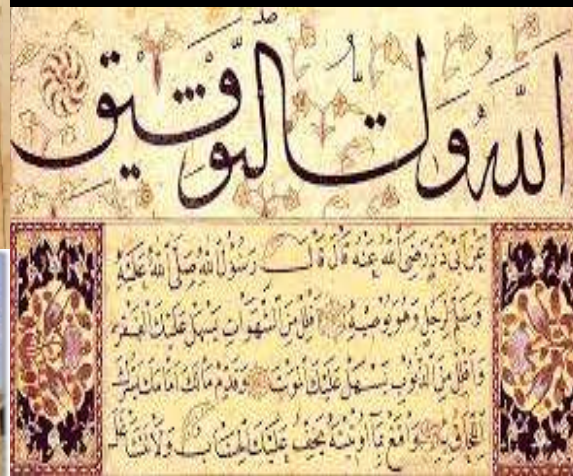 الله ولي التوفيق
عن ابي ذر رضي الله عنه قال قال رسول الله صلى الله عليه
وسلم لرجل وهو يوصيه اقلل من الشهوات يسهل عليك الفقر
واقلل من الذنوب يسهل عليك الموت وقدم مالك امامك يسرك
اللحاق به واقنع بما اوتيته يخف عليك الحساب ولا